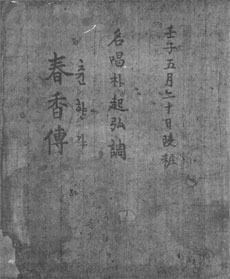 壬子五月二十日謄粧
名唱朴起弘調
춘향가
春香傳